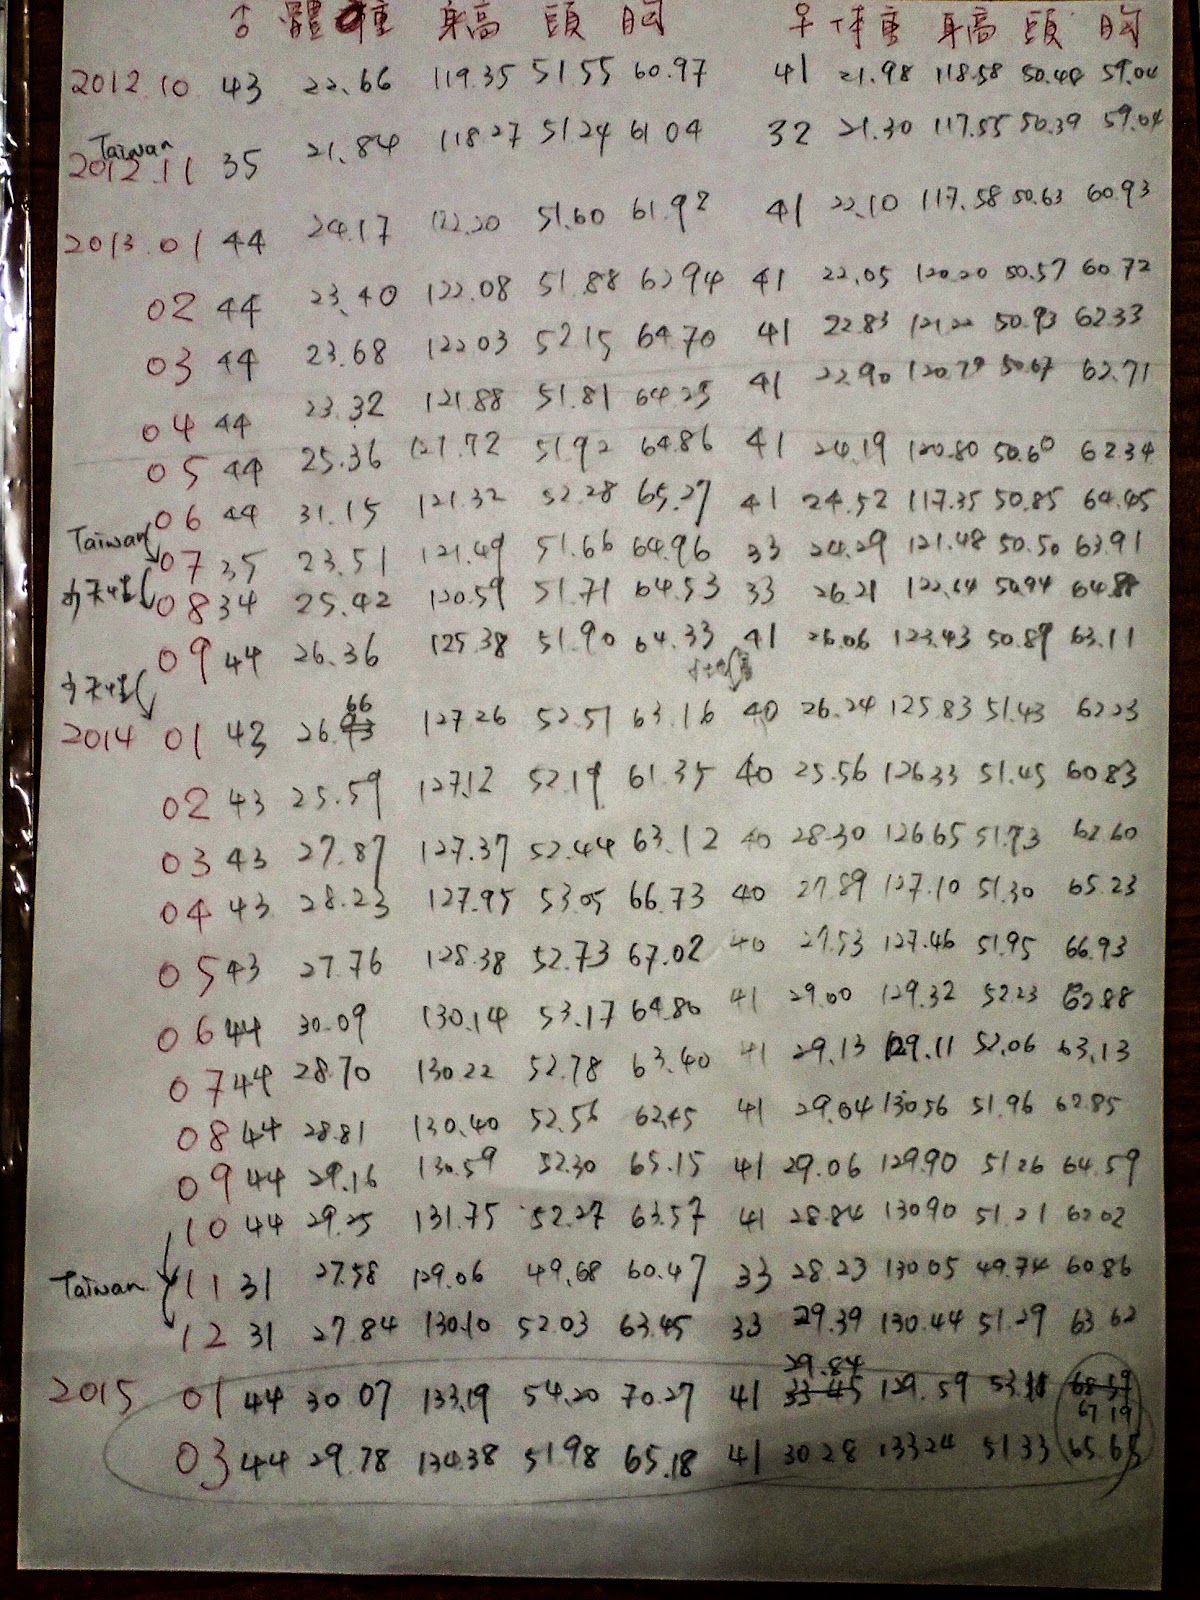 ♂ 體重 身高 頭 胸 ♀ 体重 身高 頭 胸
2012.10 43 22.66 119.35 51 55 60.97 41 21.98 118.58 50.48 59.04
Taiwan
2012.11 35 21.84 118.27 51.24 61 04 32 21.30 117.55 50.39 59.04
2013.01 44 24.17 122.20 51.60 61.92 41 22.10 117.58 50.63 60.93
02 44 23.40 122.08 51.88 62 94 41 22.05 120.20 50.57 60.72
03 44 23.68 122 03 52 15 64.70 41 22.83 121.22 50.93 62.33
04 44 23.32 121.88 51.81 64.25 41 22.90 120.79 50.67 62.71
05 44 25.36 121.72 51.92 64.86 41 24.19 120.80 50.60 62 34
06 44 31.15 121.32 52.28 65.27 41 24.52 117.35 50.85 64.45
Taiwan
07 35 23.51 121.49 51.66 64.96 33 24.29 121.48 50.50 63.91
08 34 25.42 120.59 51.71 64.53 33 26.21 122.64 50.94 64.88
09 44 26.36 125.38 51.90 64.33 41 26.06 123.43 50.89 63.11
66
2014 01 43 26.93 127.26 52.51 63.16 40 26.24 125.83 51.43 62.23
02 43 25.59 127.12 52.19 61.35 40 25.56 126.33 51.45 60.83
03 43 27.87 127.37 52.44 63.12 40 28.30 126.65 51.73 62.60
04 43 28.23 127.95 53.05 66.73 40 27.89 127.10 51.30 65.23
05 43 27.76 128.38 52.73 67.02 40 27.53 127.46 51.95 66.93
06 44 30.09 130.14 53.17 64.80 41 29.00 129.32 52.23 62.88
07 44 28.70 130.22 52.78 63.40 41 29.13 129.11 52.06 63.13
08 44 28.81 130.40 52.56 62.45 41 29.04 130.56 51.96 62.85
09 44 29.16 130.59 52.30 65.15 41 29.06 129.90 51.26 64.59
10 44 29.25 131.75 52.27 63.57 41 28.84 130 90 51.21 62 02
Taiwan 11 31 27.58 129.06 49.68 60.47 33 28.23 130.05 49.74 60.86
12 31 27.84 130.10 52.03 63.45 33 29.39 130.44 51.29 63 62
29.84
2015 01 44 30 07 133.19 54.20 70.27 41 33 45 129.59 53.18 68 59
67 19
03 44 29.78 134.38 51 98 65.18 41 30 28 133 24 51 33 65.65